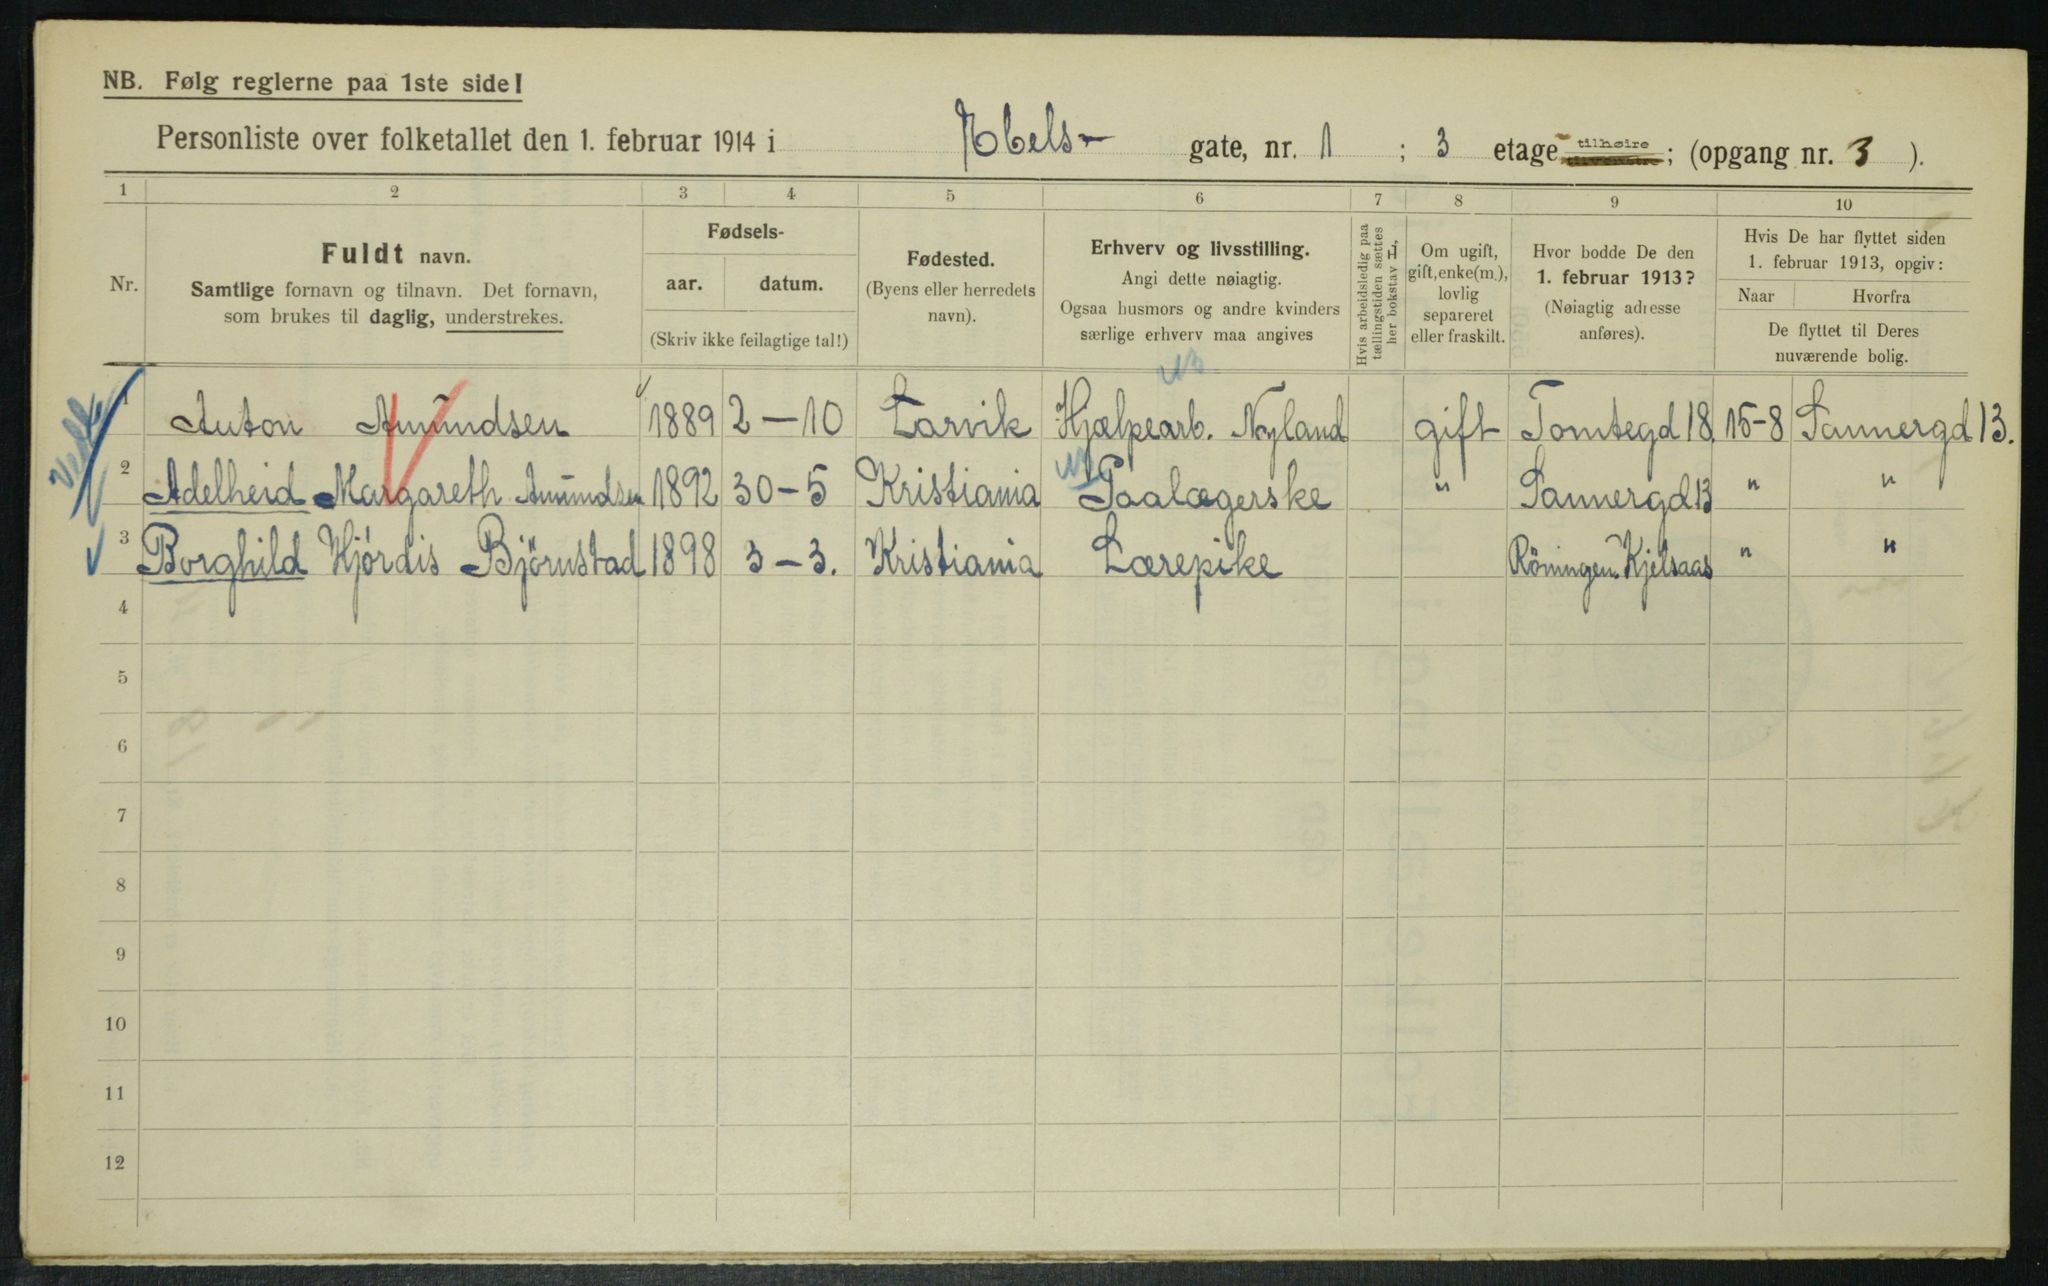 NB. Følg reglerne paa 1ste side!
Personliste over folketallet den 1. februar 1914 i Abels- gate, nr. 1 ; 3 etage tilhøire ; (opgang nr. 3 ).
1 2 3 4 5 6 7 8 9 10
Nr.
Fuldt navn.
Samtlige fornavn og tilnavn. Det fornavn,
som brukes til daglig, understrekes.
Fødsels-
aar. datum.
(Skriv ikke feilagtige tal!)
Fødested.
(Byens eller herredets
navn).
Erhverv og livsstilling.
Angi dette nøiagtig.
Ogsaa husmors og andre kvinders
særlige erhverv maa angives
Hvis arbeidsledig paa
tællingstiden sættes
her bokstav L.
Om ugift,
gift, enke(m.),
lovlig
separeret
eller fraskilt.
Hvor bodde De den
1. februar 1913?
(Nøiagtig adresse
anføres).
Hvis De har flyttet siden
1. februar 1913, opgiv:
Naar Hvorfra
De flyttet til Deres
nuværende bolig.
1 Anton Amundsen 1889 2-10 Larvik Hjælpearb. Nyland gift Tomtegd 18. 15-8 Sannergd 13.
2 Adelheid Margareth Amundsen 1892 30-5 Kristiania Paalægerske " Sannergd 13 " "
3 Borghild Hjördis Björnstad 1898 3-3. Kristiania Lærepike Röningen. Kjelsaas " "
4
5
6
7
8
9
10
11
12